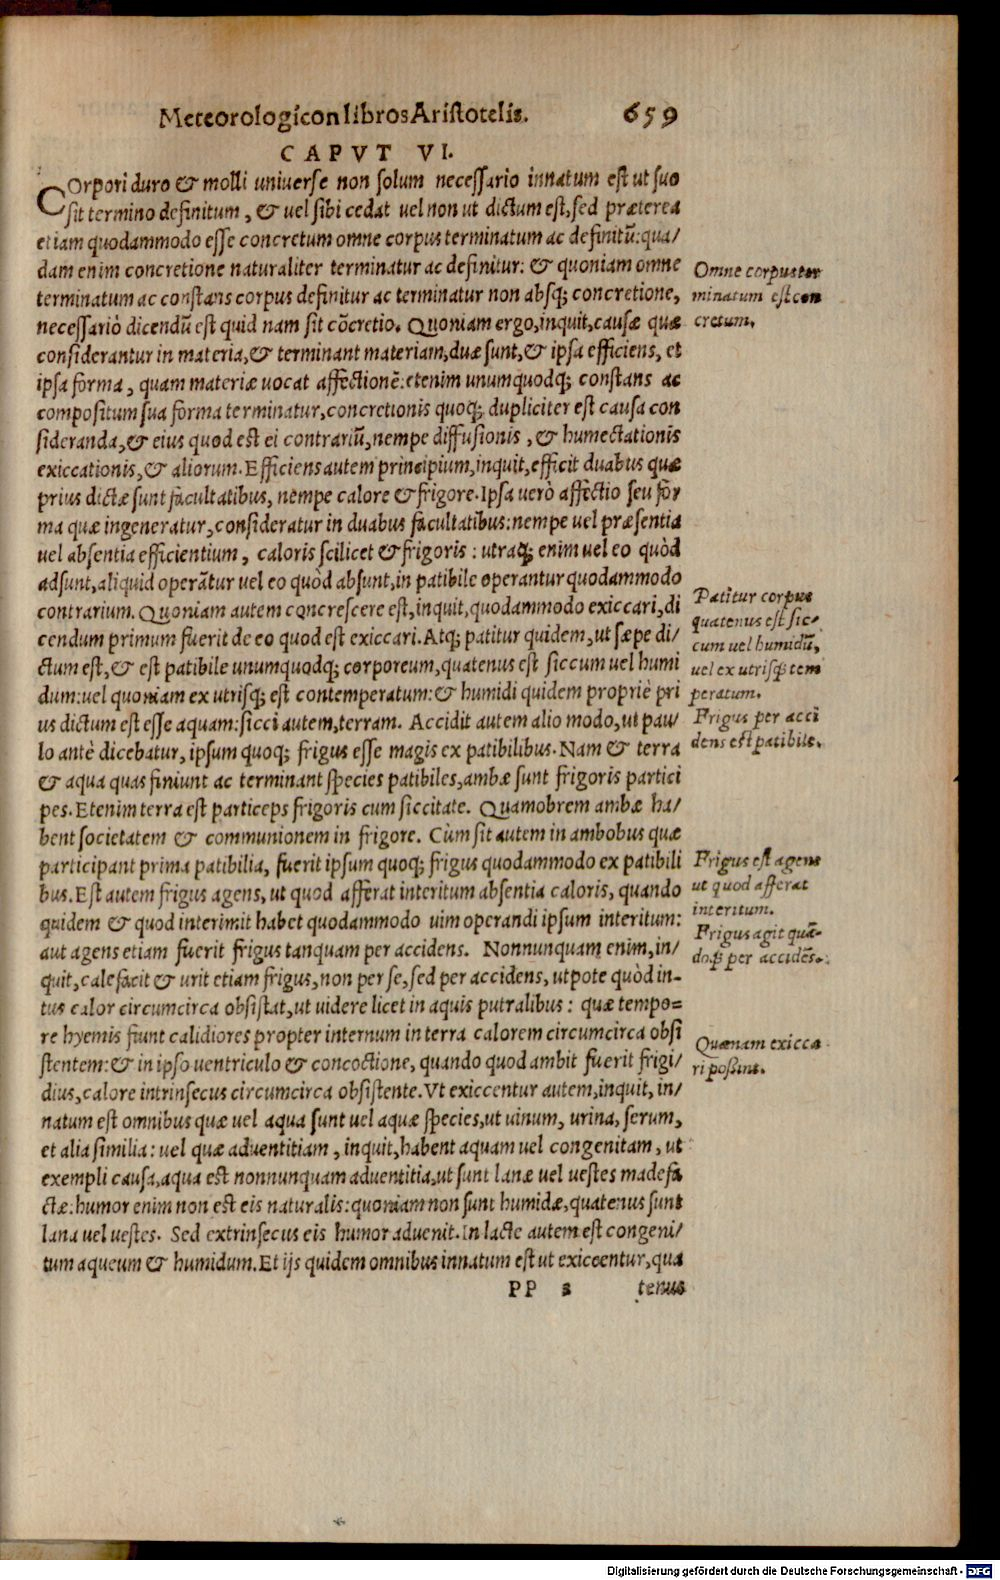 Meteorologicon libros Aristotelis. 659
CAPVT VI.
COrpori duro & molli universe non solum necessario innatum est ut suo
sit termino definitum, & vel sibi cedat vel non ut dictum est, sed præterea
etiam quodammodo esse concretum omne corpus terminatum ac definitū: qua/
dam enim concretione naturaliter terminatur ac definitur: & quoniam omne
terminatum ac constans corpus definitur ac terminatur non absq; concretione,
necessariò dicendū est quid nam sit cōcretio. Quoniam ergo, inquit, causæ quæ
considerantur in materia, & terminant materiam, duæ sunt, & ipsa efficiens, et
ipsa forma, quam materiæ uocat affectionē: etenim unumquodq; constans ac
compositum sua forma terminatur, concretionis quoq; dupliciter est causa con
sideranda, & eius quod est ei contrariū, nempe diffusionis, & humectationis
exiccationis, & aliorum. Efficiens autem principium, inquit, efficit duabus quæ
prius dictæ sunt facultatibus, nempe calore & frigore. Ipsa verò affectio seu for
ma quæ ingeneratur, consideratur in duabus facultatibus: nempe vel præsentia
vel absentia efficientium, caloris scilicet & frigoris: utraq; enim vel eo quòd
adsunt, aliquid operātur vel eo quòd absunt, in patibile operantur quodammodo
contrarium. Quoniam autem concrescere est, inquit, quodammodo exiccari, di
cendum primum fuerit de eo quod est exiccari. Atq; patitur quidem, ut sæpe di/
ctum est, & est patibile unumquodq; corporeum, quatenus est siccum vel humi
dum: vel quoniam ex utrisq; est contemperatum: & humidi quidem propriè pri
us dictum est esse aquam: sicci autem, terram. Accidit autem alio modo, ut pau/
lo antè dicebatur, ipsum quoq; frigus esse magis ex patibilibus. Nam & terra
& aqua quas finiunt ac terminant species patibiles, ambæ sunt frigoris partici
pes. Etenim terra est particeps frigoris cum siccitate. Quamobrem ambæ ha/
bent societatem & communionem in frigore. Cùm sit autem in ambobus quæ
participant prima patibilia, fuerit ipsum quoq; frigus quodammodo ex patibili
bus. Est autem frigus agens, ut quod afferat interitum absentia caloris, quando
quidem & quod interimit habet quodammodo uim operandi ipsum interitum:
aut agens etiam fuerit frigus tanquam per accidens. Nonnunquam enim, in/
quit, calefacit & urit etiam frigus, non per se, sed per accidens, utpote quòd in-
tus calor circumcirca obsistat, ut videre licet in aquis putralibus: quæ tempo=
re hyemis fiunt calidiores propter internum in terra calorem circumcirca obsi
stentem: & in ipso ventriculo & concoctione, quando quod ambit fuerit frigi/
dius, calore intrinsecus circumcirca obsistente. Vt exiccentur autem, inquit, in/
natum est omnibus quæ vel aqua sunt vel aquæ species, ut uinum, urina, serum,
et alia similia: vel quæ adventitiam, inquit, habent aquam vel congenitam, ut
exempli causa, aqua est nonnunquam adventitia, ut sunt lanæ vel vestes madefa
ctæ: humor enim non est eis naturalis: quoniam non sunt humidæ, quatenus sunt
lana vel vestes. Sed extrinsecus eis humor advenit. In lacte autem est congeni/
tum aqueum & humidum. Et ijs quidem omnibus innatum est ut exiccentur, qua
PP 2 tenus
Omne corpus ter
minatum est con
cretum.
Patitur corpus
quatenus est sic-
cum vel humidū,
vel ex utrisq; tem
peratum.
Frigus per acci
dens est patibile.
Frigus est agens
ut quod afferat
interitum.
Frigus agit quā-
doq; per accidēs.
Quænam exicca
ri possint.
Digitalisierung gefördert durch die Deutsche Forschungsgemeinschaft - DFG